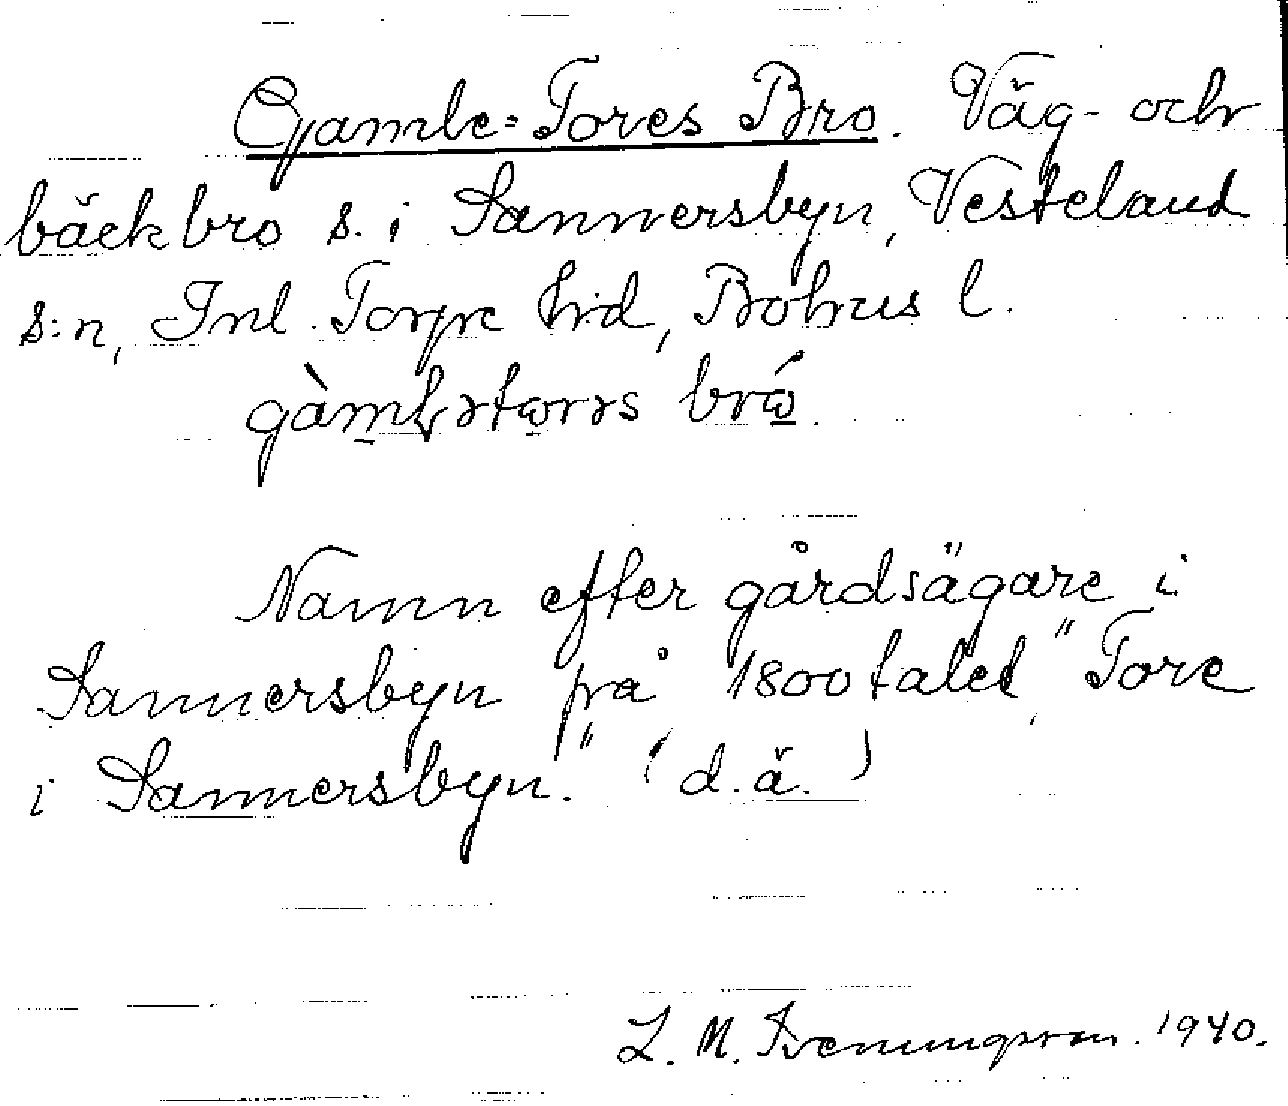 Gamle-Tores Bro. Väg- och
bäckbro s. i Sannersbyn, Vesteland
s:n, Inl. Torpe hrd, Bohus l.
gàm̲lətω̲rəs brώ̲.
Namn efter gårdsägare i
Sannersbyn på 1800talet, "Tore
i Sannersbyn." (d.ä.)
L. M. Svenungsson. 1940.